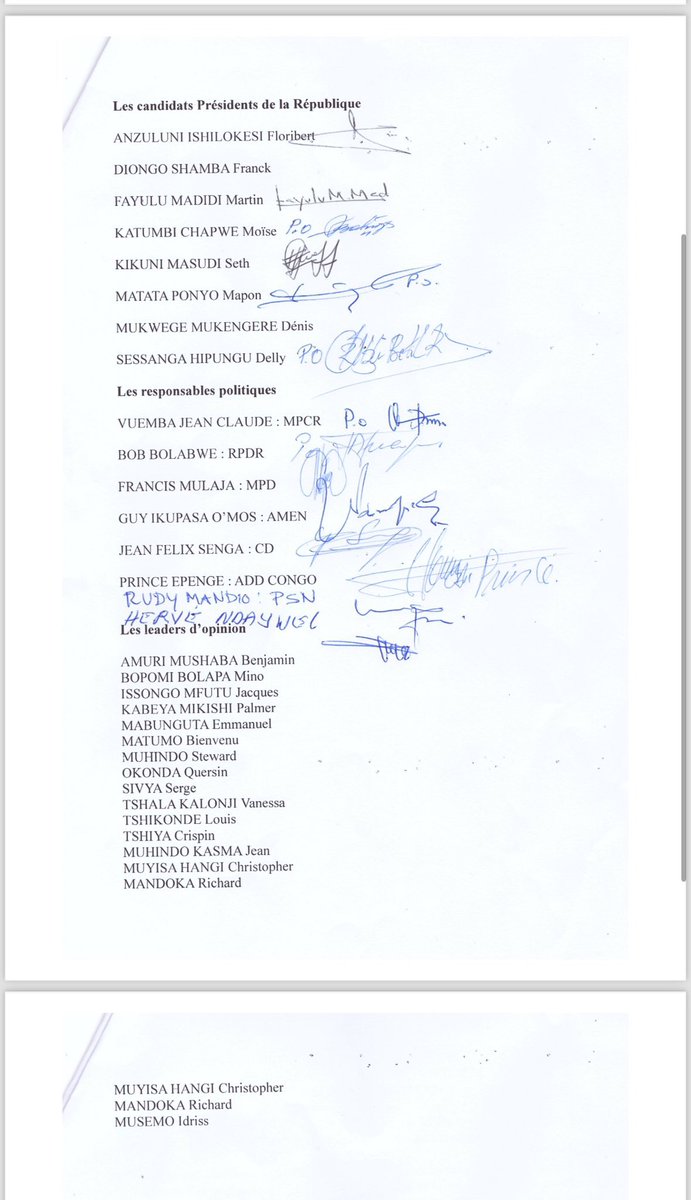 Les candidats Présidents de la République
ANZULUNI ISHILOKESI Floribert
DIONGO SHAMBA Franck
FAYULU MADIDI Martin FayuluMMad
KATUMBI CHAPWE Moïse P.O
KIKUNI MASUDI Seth
MATATA PONYO Mapon P.S.
MUKWEGE MUKENGERE Dénis
SESSANGA HIPUNGU Delly P.O
Les responsables politiques
VUEMBA JEAN CLAUDE : MPCR P.o
BOB BOLABWE : RPDR
FRANCIS MULAJA : MPD
GUY IKUPASA O’MOS : AMEN
JEAN FELIX SENGA : CD
PRINCE EPENGE : ADD CONGO Prince
RUDY MANDIO : PSN
HERVE NDAYWEL
Les leaders d’opinion
AMURI MUSHABA Benjamin
BOPOMI BOLAPA Mino
ISSONGO MFUTU Jacques
KABEYA MIKISHI Palmer
MABUNGUTA Emmanuel
MATUMO Bienvenu
MUHINDO Steward
OKONDA Quersin
SIVYA Serge
TSHALA KALONJI Vanessa
TSHIKONDE Louis
TSHIYA Crispin
MUHINDO KASMA Jean
MUYISA HANGI Christopher
MANDOKA Richard
MUYISA HANGI Christopher
MANDOKA Richard
MUSEMO Idriss